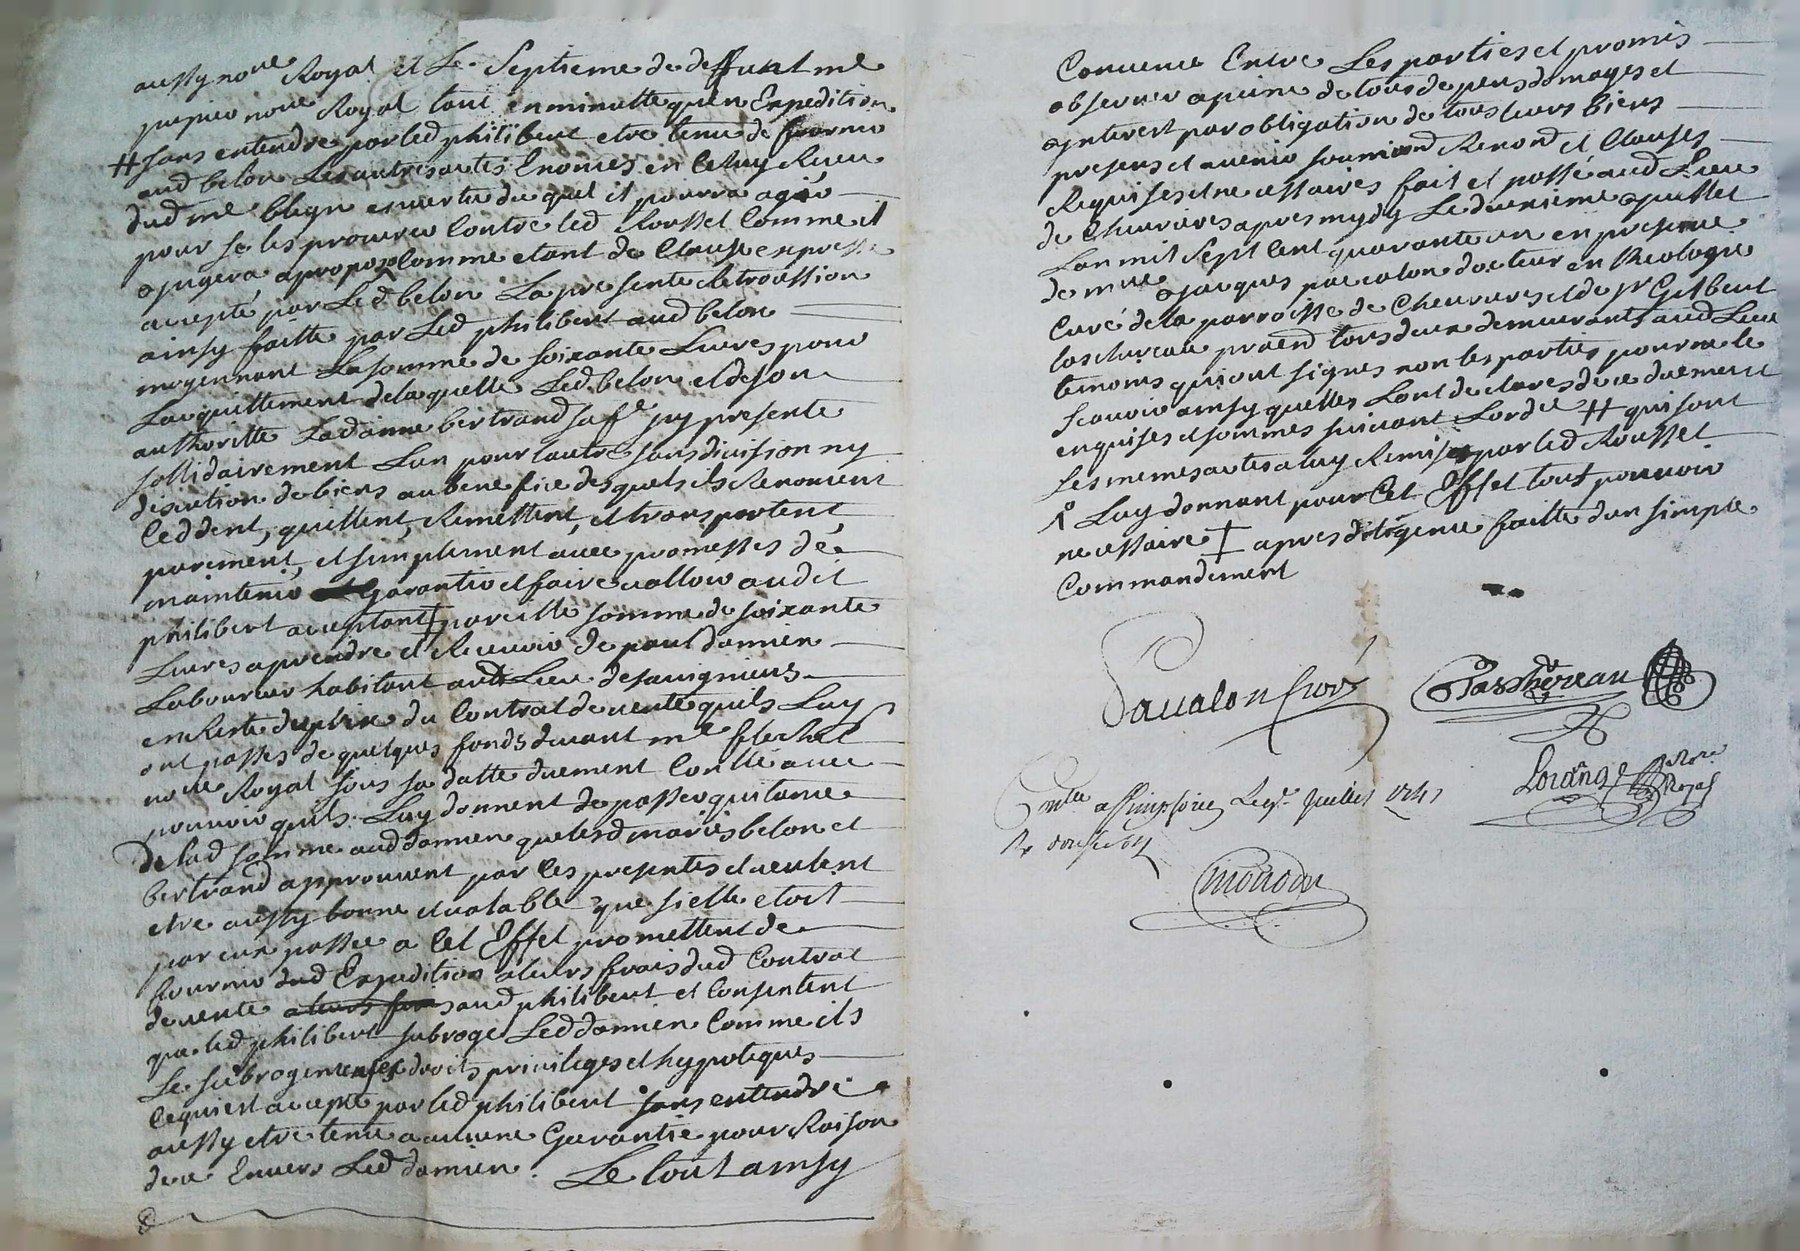 aussy no.re Royal et Le Septieme de deffunt me
pupier no.re Royal tant en minutte quen Expedition
# sans entendre par led philibert etre tenu de fournir
aud belon Les autres actes Enoncés en
dud me en vertu du quel il pourra agir
pour se les procurer Contre led Rousset Comme il
ajugera apropos Comme etant de Clause expresse
accepté par Led belon La presente Retrocession
ainsy faitte par Led philibert aud belon
moyennant La somme de soixante Livres pour
Lacquittement de laquelle Led belon et de son
authoritte Ladanne bertrand sa fe jcy presente
sollidairement Lun pour lautre sans division ny
discution de biens au benefice desquels ils Renoncent
Ceddent, quittent, Remettent, et transportent
purement, et simplement avec promesses de
maintenir Garantir et faire valloir audit
philibert acceptant ‡ pareille somme de soixante
Livres aprendre et Recevoir de paul damien
Laboureur habitant aud Lieu de savignieus
en Reste du prix du Contrat de vente quils Luy
ont passés de quelques fonds devant me
no.re Royal sous sa datte duement Conllé avec
pouvoir quils Luy donnent de passer quitance
De lad somme aud damien que lesd mariés belon et
bertrand approuvent par Ces presentes et veulent
etre aussy bonne et valable que si elle etoit
par eux passée a Cet Effet promettent de
fournir dud Expedition aleurs frais dud Contrat
de vente aleurs frais aud philibert et Consentent
que led philibert subroge Led damien Comme ils
Le subrogent en ses droits privileges et hypoteques
Ce qui est accepté par led philibert sans entendre
aussy etre tenu a aucune Garantie pour Raison
de ce Envers Led damien. Le tout ainsy
Convenu Entre Les parties et promis
observer apeine de tous depens domages et
jnterest par obligation de tous leurs biens
presens et avenir soumiond Renond et Clauses
Requises et necessaires fait et passé aud Lieu
de Chevrieres apres mydy Le deuxieme juillet
Lan mil Sept Cent quarante un en presence
de mre jacques pacalon docteur en theologie
Curé de la parroisse de Chevrieres et de sr Gilbert
laschereau pratd tous deux demeurants aud Lieu
temoins qui ont signés non les parties pour ne le
scavoir ainsy quelles Lont declarés de ce duement
enquises et sommés suivant Lordce # qui sont
Les memes actes a luy Remis par led Rousset
Luy donnant pour Cet Effet tout pouvoir
necessaire ‡ apres diligence faitte dun simple
Commandement
Pacalon Curé
Laschereau
Lorange Nore Royal
juillet 1741